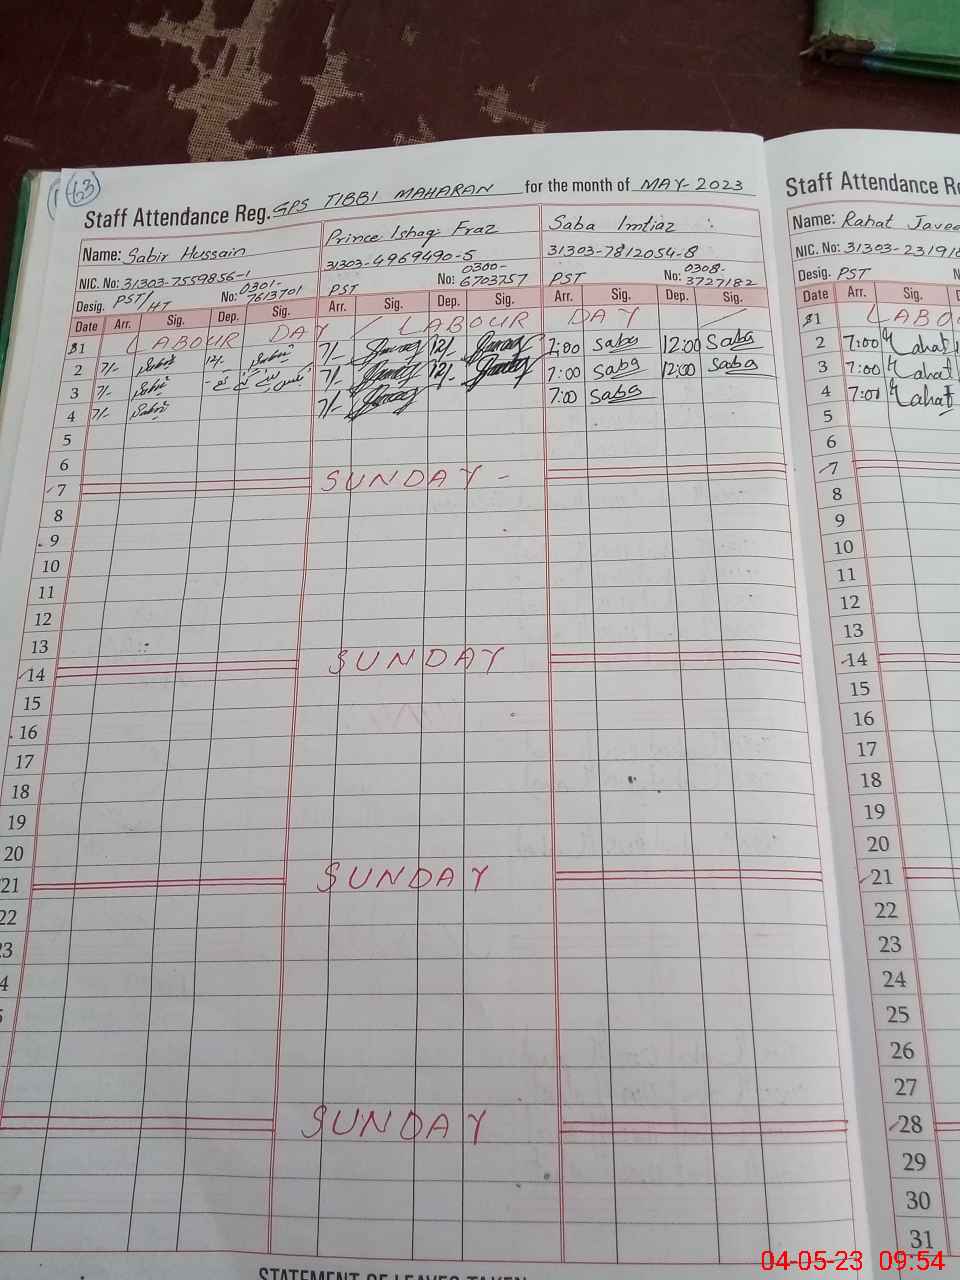 63
Staff Attendance Reg. GPS TIBBI MAHARAN for the month of MAY-2023
Name: Sabir Hussain Prince Ishaq Fraz Saba Imtiaz
NIC. No: 31303-7559856-1 31303-4969490-5 31303-7812054-8
Desig. PST/HT No: 0301-7613701 PST No: 0300-6703757 PST No: 0308-3727182
Date Arr. Sig. Dep. Sig. Arr. Sig. Dep. Sig. Arr. Sig. Dep. Sig.
1 LABOUR DAY LABOUR DAY
2 7/- Sabir 12/- Sabir 7/- 12/- 7:00 Saba 12:00 Saba
3 7/- Sabir 7/- 12/- 7:00 Saba 12:00 Saba
4 7/- Sabir 7/- 7:00 Saba
5
6
7 SUNDAY -
8
9
10
11
12
13
14 SUNDAY
15
16
17
18
19
20
21 SUNDAY
22
SUNDAY
STATEMENT OF LEAVES TAKEN
Staff Attendance
Name: Rahat
NIC. No: 31303-2319
Desig. PST
Date Arr. Sig.
1
2 7:00 Rahat
3 7:00 Rahat
4 7:01 Rahat
5
6
7
8
9
10
11
12
13
14
15
16
17
18
19
20
21
22
23
24
25
26
27
28
29
30
31
04-05-23 09:54